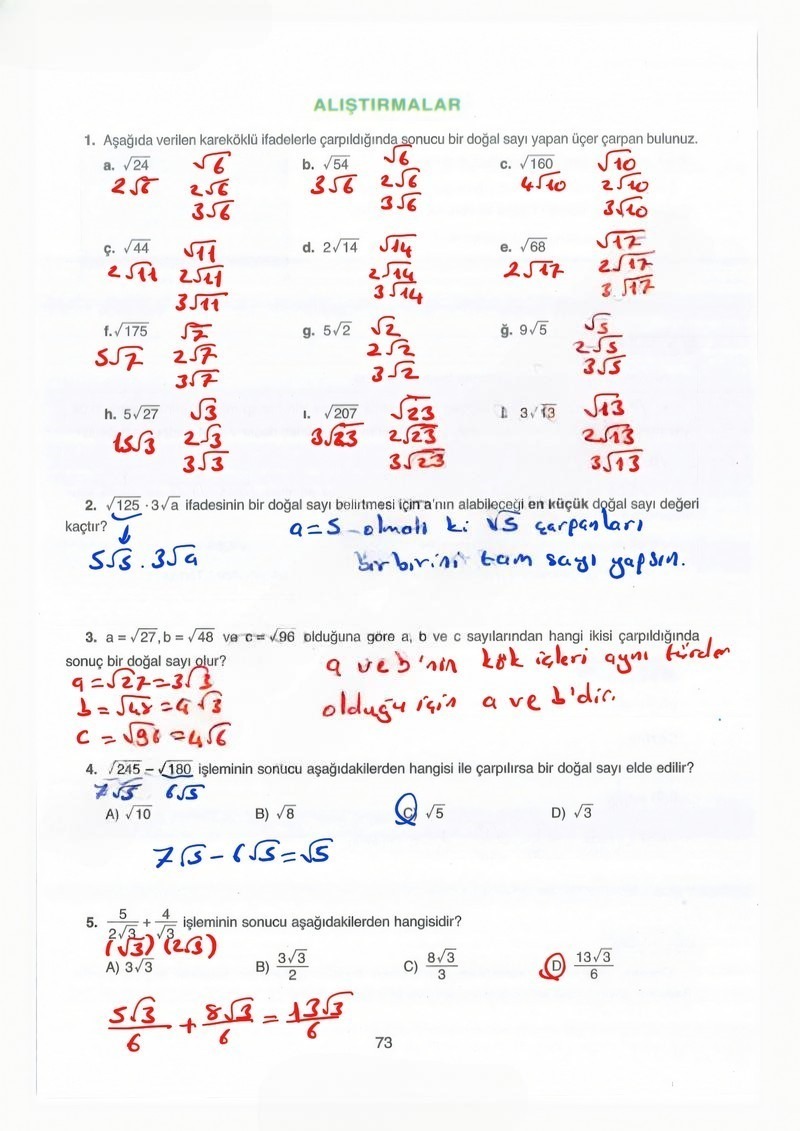 ALIŞTIRMALAR
1. Aşağıda verilen kareköklü ifadelerle çarpıldığında sonucu bir doğal sayı yapan üçer çarpan bulunuz.
a. √24 √6 b. √54 √6 c. √160 √10
2√6 2√6 3√6 2√6 4√10 2√10
3√6 3√6 3√10
ç. √44 √11 d. 2√14 √14 e. √68 √17
2√11 2√11 2√14 2√17 2√17
3√11 3√14 3√17
f. √175 √7 g. 5√2 √2 ğ. 9√5 √5
5√7 2√7 2√2 2√5
3√7 3√2 3√5
h. 5√27 √3 ı. √207 √23 i. 3√13 √13
15√3 2√3 3√23 2√23 2√13
3√3 3√23 3√13
2. √125 · 3√a ifadesinin bir doğal sayı belirtmesi için a'nın alabileceği en küçük doğal sayı değeri
kaçtır? a=5 olmalı ki √5 çarpanları
5√5 . 3√a birbirini tam sayı yapsın.
3. a = √27, b = √48 ve c = √96 olduğuna göre a, b ve c sayılarından hangi ikisi çarpıldığında
sonuç bir doğal sayı olur? a ve b'nin kök içleri aynı türden
a = √27 = 3√3
b = √48 = 4√3 olduğu için a ve b'dir.
c = √96 = 4√6
4. √245 – √180 işleminin sonucu aşağıdakilerden hangisi ile çarpılırsa bir doğal sayı elde edilir?
7√5 6√5
A) √10 B) √8 C) √5 D) √3
7√5 – 6√5 = √5
5. 5/2√3 + 4/√3 işleminin sonucu aşağıdakilerden hangisidir?
(√3) (2√3)
A) 3√3 B) 3√3/2 C) 8√3/3 D) 13√3/6
5√3/6 + 8√3/6 = 13√3/6
73